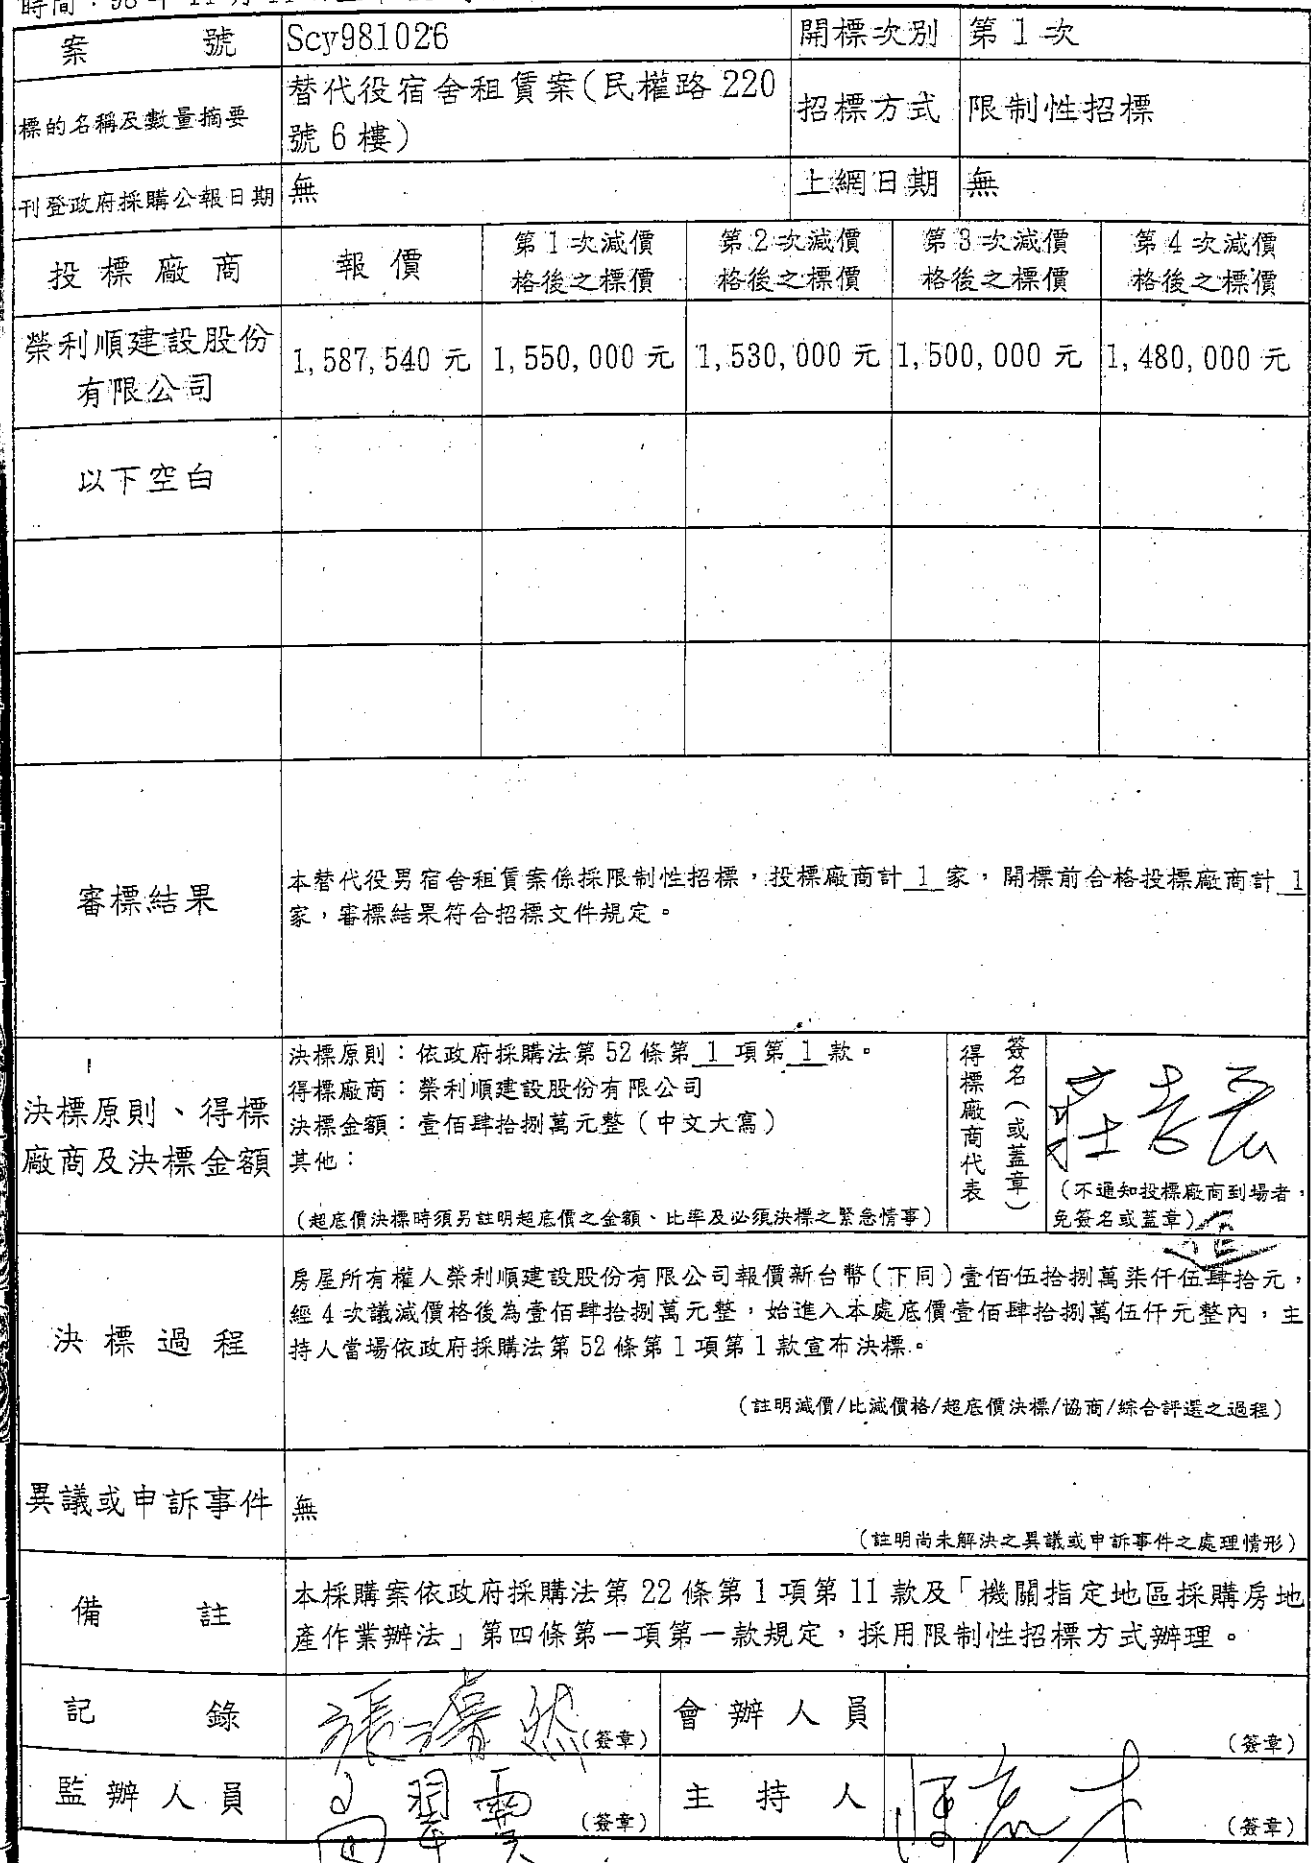 案 號 Scy981026 開標次別 第 1 次
標的名稱及數量摘要 替代役宿舍租賃案(民權路 220
號 6 樓) 招標方式 限制性招標
刊登政府採購公報日期 無 上網日期 無
投標廠商 報價 第 1 次減價 第 2 次減價 第 3 次減價 第 4 次減價
格後之標價 格後之標價 格後之標價 格後之標價
榮利順建設股份
有限公司 1,587,540 元 1,550,000 元 1,530,000 元 1,500,000 元 1,480,000 元
以下空白
審標結果
本替代役男宿舍租賃案係採限制性招標，投標廠商計 1 家，開標前合格投標廠商計 1
家，審標結果符合招標文件規定。
決標原則、得標
廠商及決標金額
決標原則：依政府採購法第 52 條第 1 項第 1 款。
得標廠商：榮利順建設股份有限公司
決標金額：壹佰肆拾捌萬元整（中文大寫）
其他：
（超底價決標時須另註明超底價之金額、比率及必須決標之緊急情事）
得標廠商代表
簽名（或蓋章）
（不通知投標廠商到場者，
免簽名或蓋章）
決標過程
房屋所有權人榮利順建設股份有限公司報價新台幣(下同)壹佰伍拾捌萬柒仟伍肆拾元，
經 4 次議減價格後為壹佰肆拾捌萬元整，始進入本處底價壹佰肆拾捌萬伍仟元整內，主
持人當場依政府採購法第 52 條第 1 項第 1 款宣布決標。
（註明減價/比減價格/超底價決標/協商/綜合評選之過程）
異議或申訴事件 無
（註明尚未解決之異議或申訴事件之處理情形）
備 註
本採購案依政府採購法第 22 條第 1 項第 11 款及「機關指定地區採購房地
產作業辦法」第四條第一項第一款規定，採用限制性招標方式辦理。
記 錄 (簽章) 會辦人員 (簽章)
監辦人員 (簽章) 主持人 (簽章)